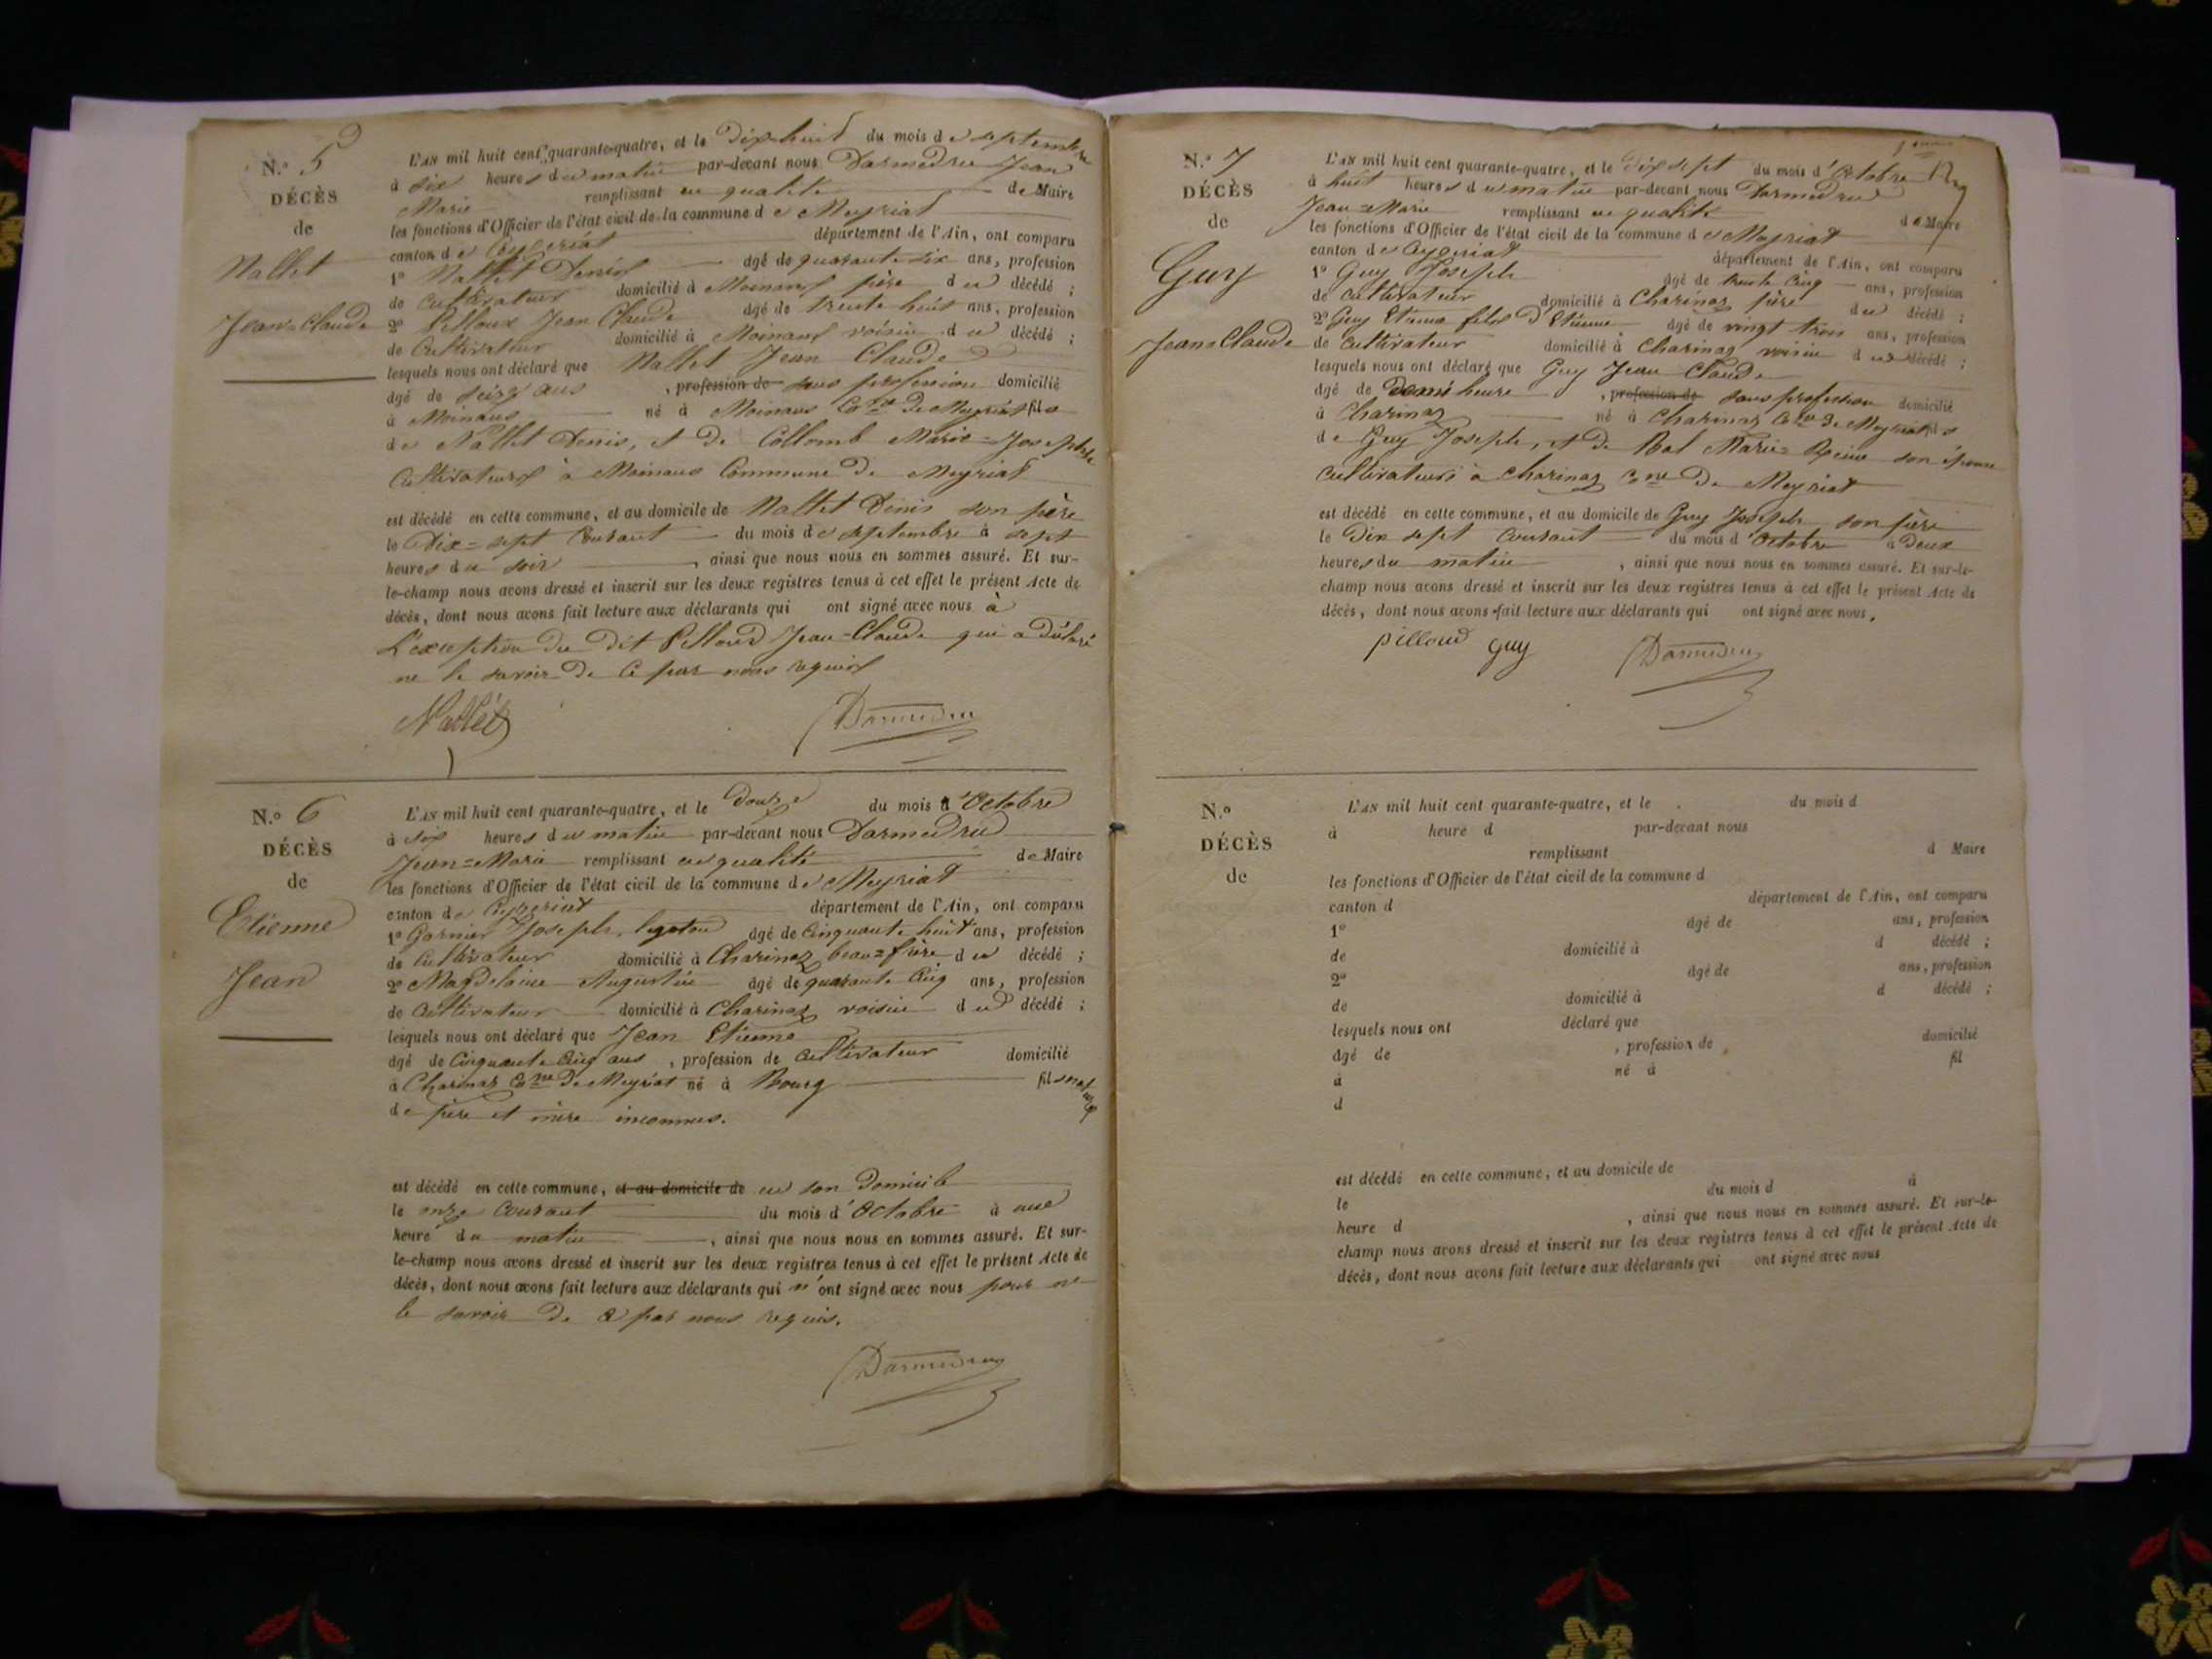 N.o 5
DÉCÈS
de
Nallet
Jean-Claude
L'AN mil huit cent quarante-quatre, et le Dix-huit du mois de septembre
à six heures du matin par-devant nous Darmedru Jean
Marie remplissant en qualité de Maire
les fonctions d'Officier de l'état civil de la commune de Meyriat
canton de Ceyzeriat département de l'Ain, ont comparu
1o Nallet Denis âgé de quarante six ans, profession
de Cultivateur domicilié à Moinans père du décédé ;
2o Pilloux Jean Claude âgé de trente huit ans, profession
de Cultivateur domicilié à Moinans voisin du décédé ;
lesquels nous ont déclaré que Nallet Jean Claude
âgé de seize ans , profession de sans profession domicilié
à Moinans né à Moinans Cne de Meyriat fils
de Nallet Denis, et de Collomb Marie-Josephte
Cultivateurs à Moinans Commune de Meyriat
est décédé en cette commune, et au domicile de Nallet Denis son père
le Dix-sept Courant du mois de septembre à sept
heures du soir , ainsi que nous nous en sommes assuré. Et sur-
le-champ nous avons dressé et inscrit sur les deux registres tenus à cet effet le présent Acte de
décès, dont nous avons fait lecture aux déclarants qui ont signé avec nous à
L'exception du dit Pilloud Jean-Claude qui a déclaré
ne le savoir de ce par nous requis
Nallet Darmedru
N.o 6
DÉCÈS
de
Etienne
Jean
L'AN mil huit cent quarante-quatre, et le Douze du mois d'Octobre
à six heures du matin par-devant nous Darmedru
Jean-Marie remplissant en qualité de Maire
les fonctions d'Officier de l'état civil de la commune de Meyriat
canton de Ceyzeriat département de l'Ain, ont comparu
1o Garnier Joseph, âgé de Cinquante huit ans, profession
de Cultivateur domicilié à Charinaz beau-frère du décédé ;
2o Magdelaine Augustin âgé de quarante Cinq ans, profession
de Cultivateur domicilié à Charinaz voisin du décédé ;
lesquels nous ont déclaré que Jean Etienne
âgé de Cinquante Cinq ans , profession de Cultivateur domicilié
à Charinaz Cne de Meyriat né à Bourg fils
de père et mère inconnus.
est décédé en cette commune, et au domicile de en son Domicile
le onze Courant du mois d'Octobre à une
heure du matin , ainsi que nous nous en sommes assuré. Et sur-
le-champ nous avons dressé et inscrit sur les deux registres tenus à cet effet le présent Acte de
décès, dont nous avons fait lecture aux déclarants qui n'ont signé avec nous pour ne
le savoir de ce par nous requis.
Darmedru
N.o 7
DÉCÈS
de
Guy
Jean-Claude
L'AN mil huit cent quarante-quatre, et le dix sept du mois d'Octobre
à huit heures du matin par-devant nous Darmedru
Jean-Marie remplissant en qualité de Maire
les fonctions d'Officier de l'état civil de la commune de Meyriat
canton de Ceyzeriat département de l'Ain, ont comparu
1o Guy Joseph âgé de trente Cinq ans, profession
de Cultivateur domicilié à Charinaz père du décédé ;
2o Guy Etienne fils d'Etienne âgé de vingt trois ans, profession
de Cultivateur domicilié à Charinaz voisin du décédé ;
lesquels nous ont déclaré que Guy Jean Claude
âgé de Demi heure , profession de sans profession domicilié
à Charinaz né à Charinaz Cne de Meyriat fils
de Guy Joseph, et de Bal Marie-Reine son épouse
cultivateurs à Charinaz Cne de Meyriat
est décédé en cette commune, et au domicile de Guy Joseph son père
le Dix sept Courant du mois d'Octobre à Deux
heures du matin , ainsi que nous nous en sommes assuré. Et sur-le-
champ nous avons dressé et inscrit sur les deux registres tenus à cet effet le présent Acte de
décès, dont nous avons fait lecture aux déclarants qui ont signé avec nous.
pilloud guy Darmedru
N.o
DÉCÈS
de
L'AN mil huit cent quarante-quatre, et le du mois d
à heure d par-devant nous
remplissant d Maire
les fonctions d'Officier de l'état civil de la commune d
canton d département de l'Ain, ont comparu
1o âgé de ans, profession
de domicilié à d décédé ;
2o âgé de ans, profession
de domicilié à d décédé ;
lesquels nous ont déclaré que
âgé de , profession de domicilié
à né à fil
d
est décédé en cette commune, et au domicile de
le du mois d à
heure d , ainsi que nous nous en sommes assuré. Et sur-le-
champ nous avons dressé et inscrit sur les deux registres tenus à cet effet le présent Acte de
décès, dont nous avons fait lecture aux déclarants qui ont signé avec nous